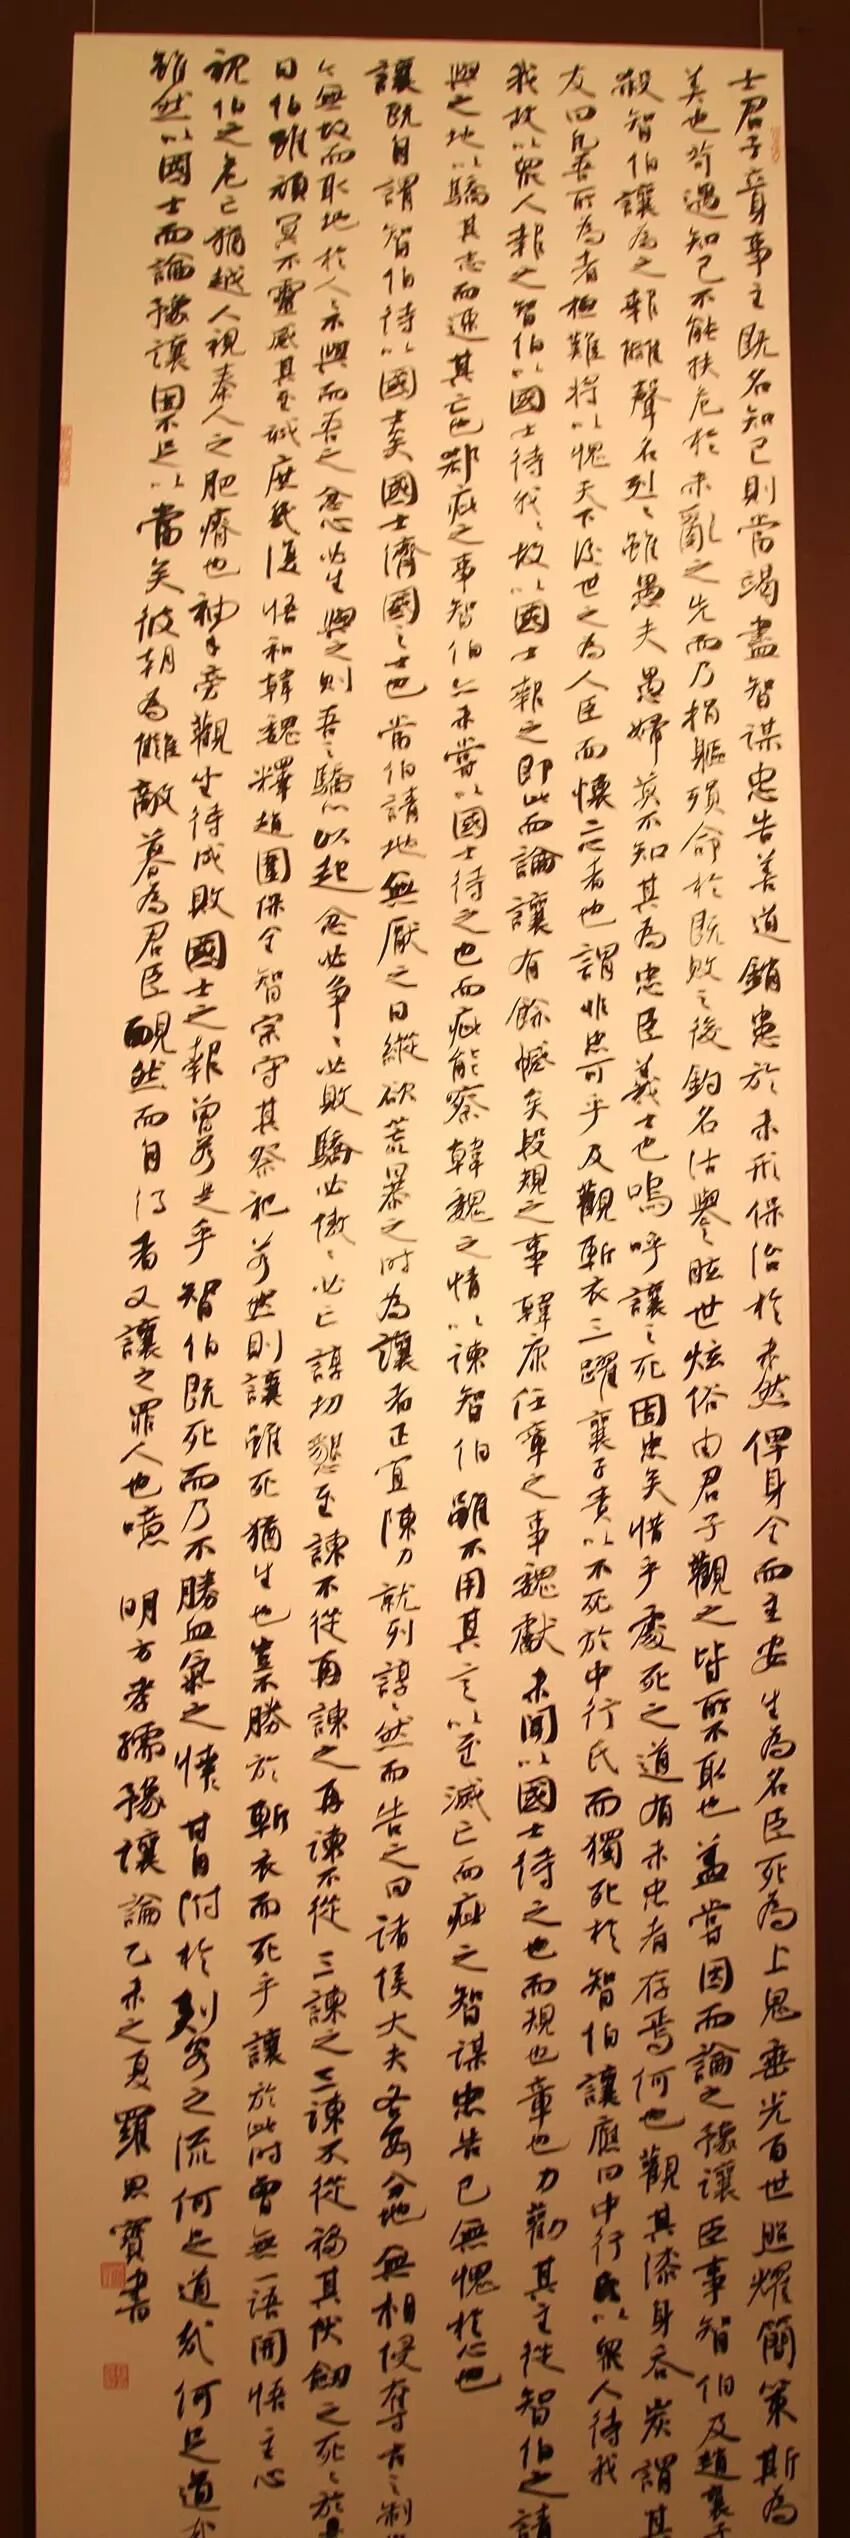 士君子立身事主既名知己則當竭盡智謀忠告善道銷患於未形保治於未然俾身全而主安生為名臣死為上鬼垂光百世照耀簡策斯為
美也苟遇知己不能扶危於未亂之先而乃捐軀殞命於既敗之後釣名沽譽眩世炫俗由君子觀之皆所不取也蓋嘗因而論之豫讓臣事智伯及趙襄子
殺智伯讓為之報讎聲名烈々雖愚夫愚婦莫不知其為忠臣義士也嗚呼讓之死固忠矣惜乎處死之道有未忠者存焉何也觀其漆身吞炭謂其
友曰凡吾所為者極難將以愧天下後世之為人臣而懷二心者也謂非忠可乎及觀斬衣三躍襄子責以不死於中行氏而獨死於智伯讓應曰中行氏以眾人待我
我故以眾人報之智伯以國士待我々故以國士報之即此而論讓有餘憾矣段規之事韓康任章之事魏獻未聞以國士待之也而規也章也力勸其主從智伯之請
與之地以驕其志而速其亡也郄疵之事智伯亦未嘗以國士待之也而疵能察韓魏之情以諫智伯雖不用其言以至滅亡而疵之智謀忠告已無愧於心也
讓既自謂智伯待以國士矣國士濟國之士也當伯請地無厭之日縱欲荒暴之時為讓者正宜陳力就列諄々然而告之曰諸侯大夫各安分地無相侵奪古之制
今無故而取地於人々不與而吾之忿心必生與之則吾之驕心以起忿必爭々必敗驕必傲々必亡諄切懇至諫不從再諫之再諫不從三諫之三諫不從移其伏劍之死々於是
日伯雖頑冥不靈感其至誠庶幾復悟和韓魏釋趙圍保全智宗守其祭祀若然則讓雖死猶生也豈不勝於斬衣而死乎讓於此時曾無一語開悟主心
視伯之危亡猶越人視秦人之肥瘠也袖手旁觀坐待成敗國士之報曾若是乎智伯既死而乃不勝血氣之悻々甘自附於刺客之流何足道哉何足道哉
雖然以國士而論豫讓固不足以當矣彼朝為讎敵暮為君臣靦然而自得者又讓之罪人也噫 明方孝孺豫讓論乙未之夏羅思寶書